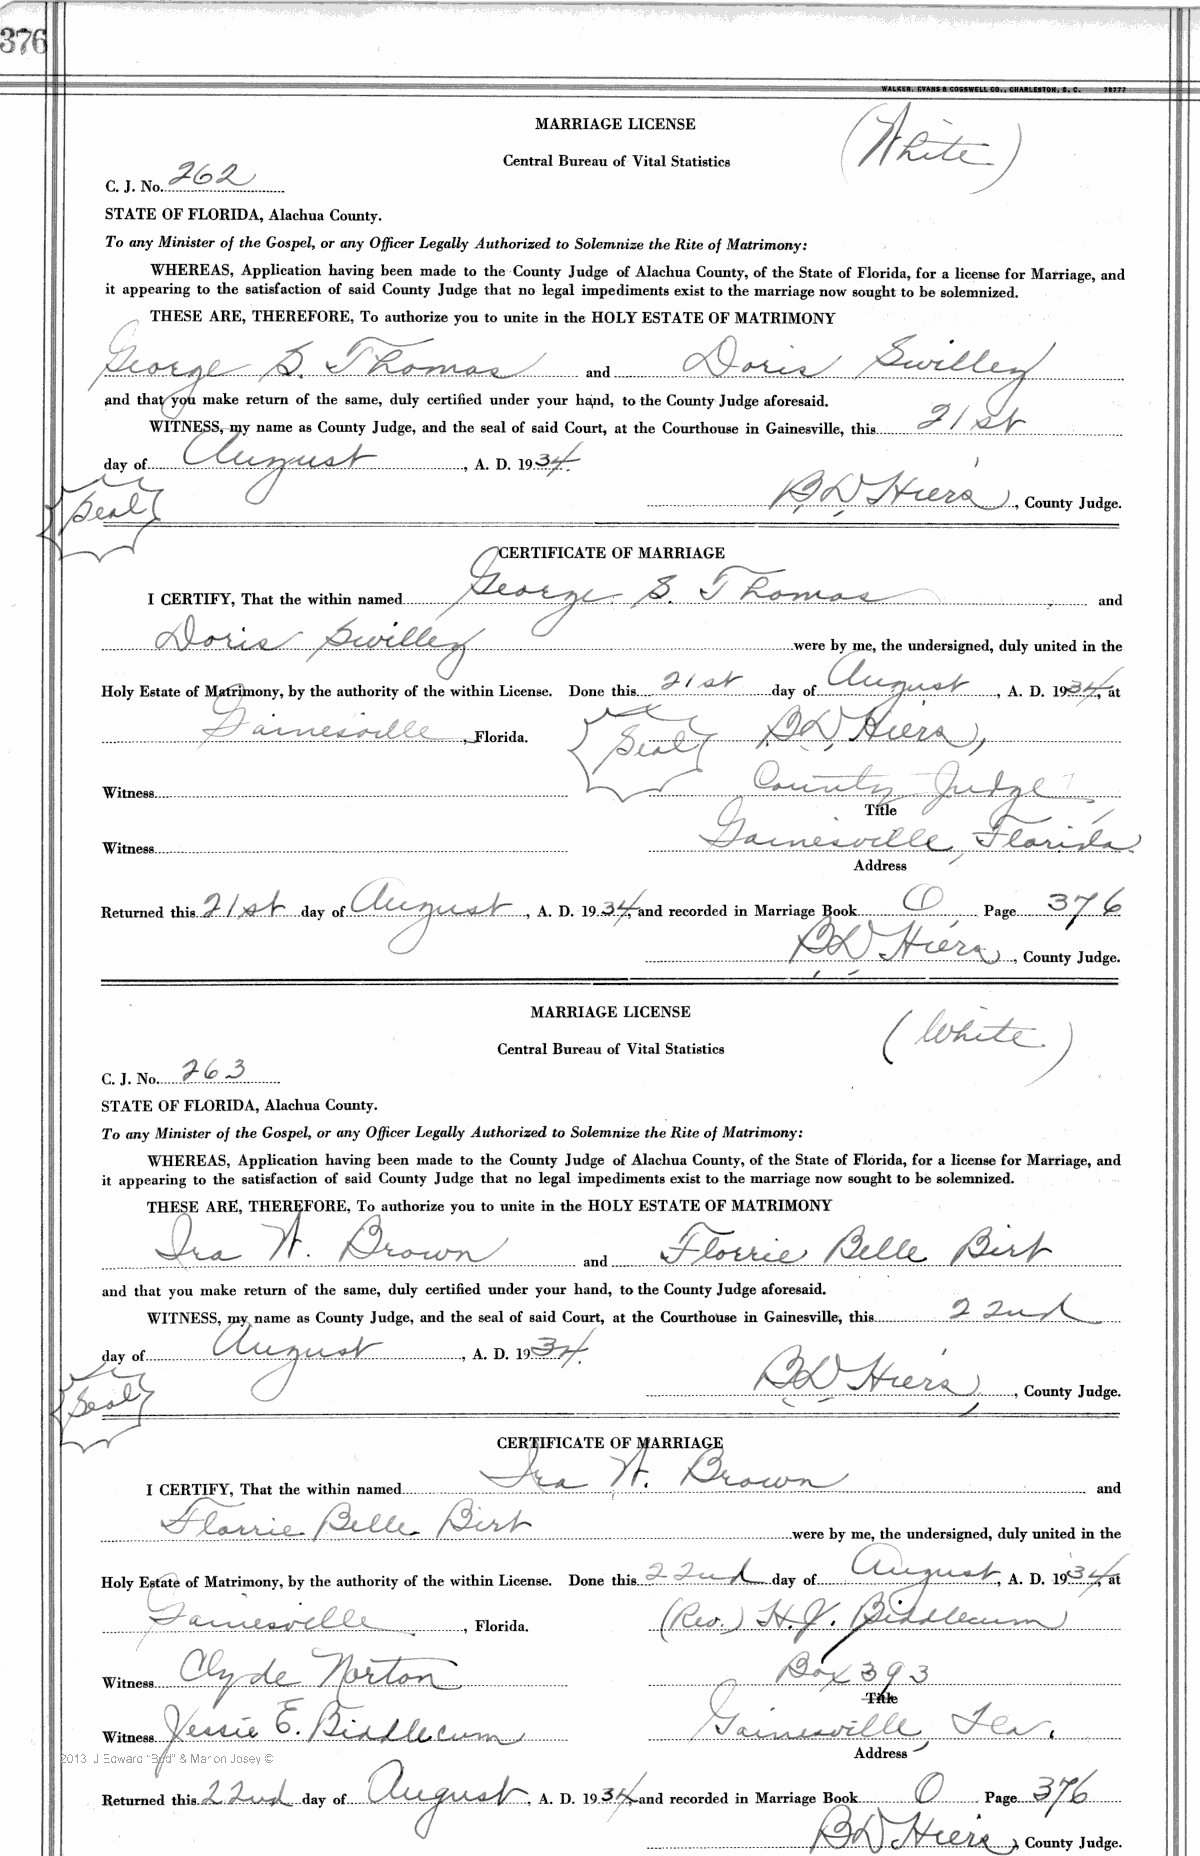 376
WALKER, EVANS & COGSWELL CO., CHARLESTON, S. C. 78777
MARRIAGE LICENSE
(White)
Central Bureau of Vital Statistics
C. J. No. 262
STATE OF FLORIDA, Alachua County.
To any Minister of the Gospel, or any Officer Legally Authorized to Solemnize the Rite of Matrimony:
WHEREAS, Application having been made to the County Judge of Alachua County, of the State of Florida, for a license for Marriage, and
it appearing to the satisfaction of said County Judge that no legal impediments exist to the marriage now sought to be solemnized.
THESE ARE, THEREFORE, To authorize you to unite in the HOLY ESTATE OF MATRIMONY
George S. Thomas and Doris Swilley
and that you make return of the same, duly certified under your hand, to the County Judge aforesaid.
WITNESS, my name as County Judge, and the seal of said Court, at the Courthouse in Gainesville, this 21st
day of August, A. D. 1934.
Seal
B. D. Hiers, County Judge.
CERTIFICATE OF MARRIAGE
I CERTIFY, That the within named George S. Thomas and
Doris Swilley were by me, the undersigned, duly united in the
Holy Estate of Matrimony, by the authority of the within License. Done this 21st day of August, A. D. 1934, at
Gainesville, Florida. Seal B. D. Hiers,
Witness County Judge
Title
Witness Gainesville, Florida.
Address
Returned this 21st day of August, A. D. 1934, and recorded in Marriage Book O, Page 376
B. D. Hiers, County Judge.
MARRIAGE LICENSE
(White)
Central Bureau of Vital Statistics
C. J. No. 263
STATE OF FLORIDA, Alachua County.
To any Minister of the Gospel, or any Officer Legally Authorized to Solemnize the Rite of Matrimony:
WHEREAS, Application having been made to the County Judge of Alachua County, of the State of Florida, for a license for Marriage, and
it appearing to the satisfaction of said County Judge that no legal impediments exist to the marriage now sought to be solemnized.
THESE ARE, THEREFORE, To authorize you to unite in the HOLY ESTATE OF MATRIMONY
Ira W. Brown and Florrie Belle Birt
and that you make return of the same, duly certified under your hand, to the County Judge aforesaid.
WITNESS, my name as County Judge, and the seal of said Court, at the Courthouse in Gainesville, this 22nd
day of August, A. D. 1934.
Seal
B. D. Hiers, County Judge.
CERTIFICATE OF MARRIAGE
I CERTIFY, That the within named Ira W. Brown and
Florrie Belle Birt were by me, the undersigned, duly united in the
Holy Estate of Matrimony, by the authority of the within License. Done this 22nd day of August, A. D. 1934, at
Gainesville, Florida. (Rev.) H. J. Biddlecum
Witness Clyde Norton Box 393
Title
Witness Jessie E. Biddlecum Gainesville, Fla.
Address
2013 J Edward "Bud" & Marion Josey ©
Returned this 22nd day of August, A. D. 1934, and recorded in Marriage Book O Page 376
B. D. Hiers, County Judge.